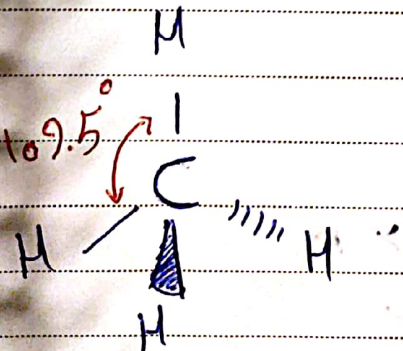 H
109.5°
C
H H
H